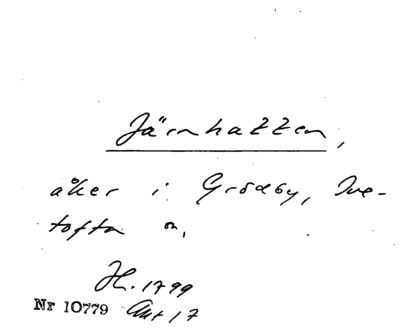 Järnhatten,
åker i Grödby, Tve-
tofta sn,
H. 1799
Nr 10779 Akt 17